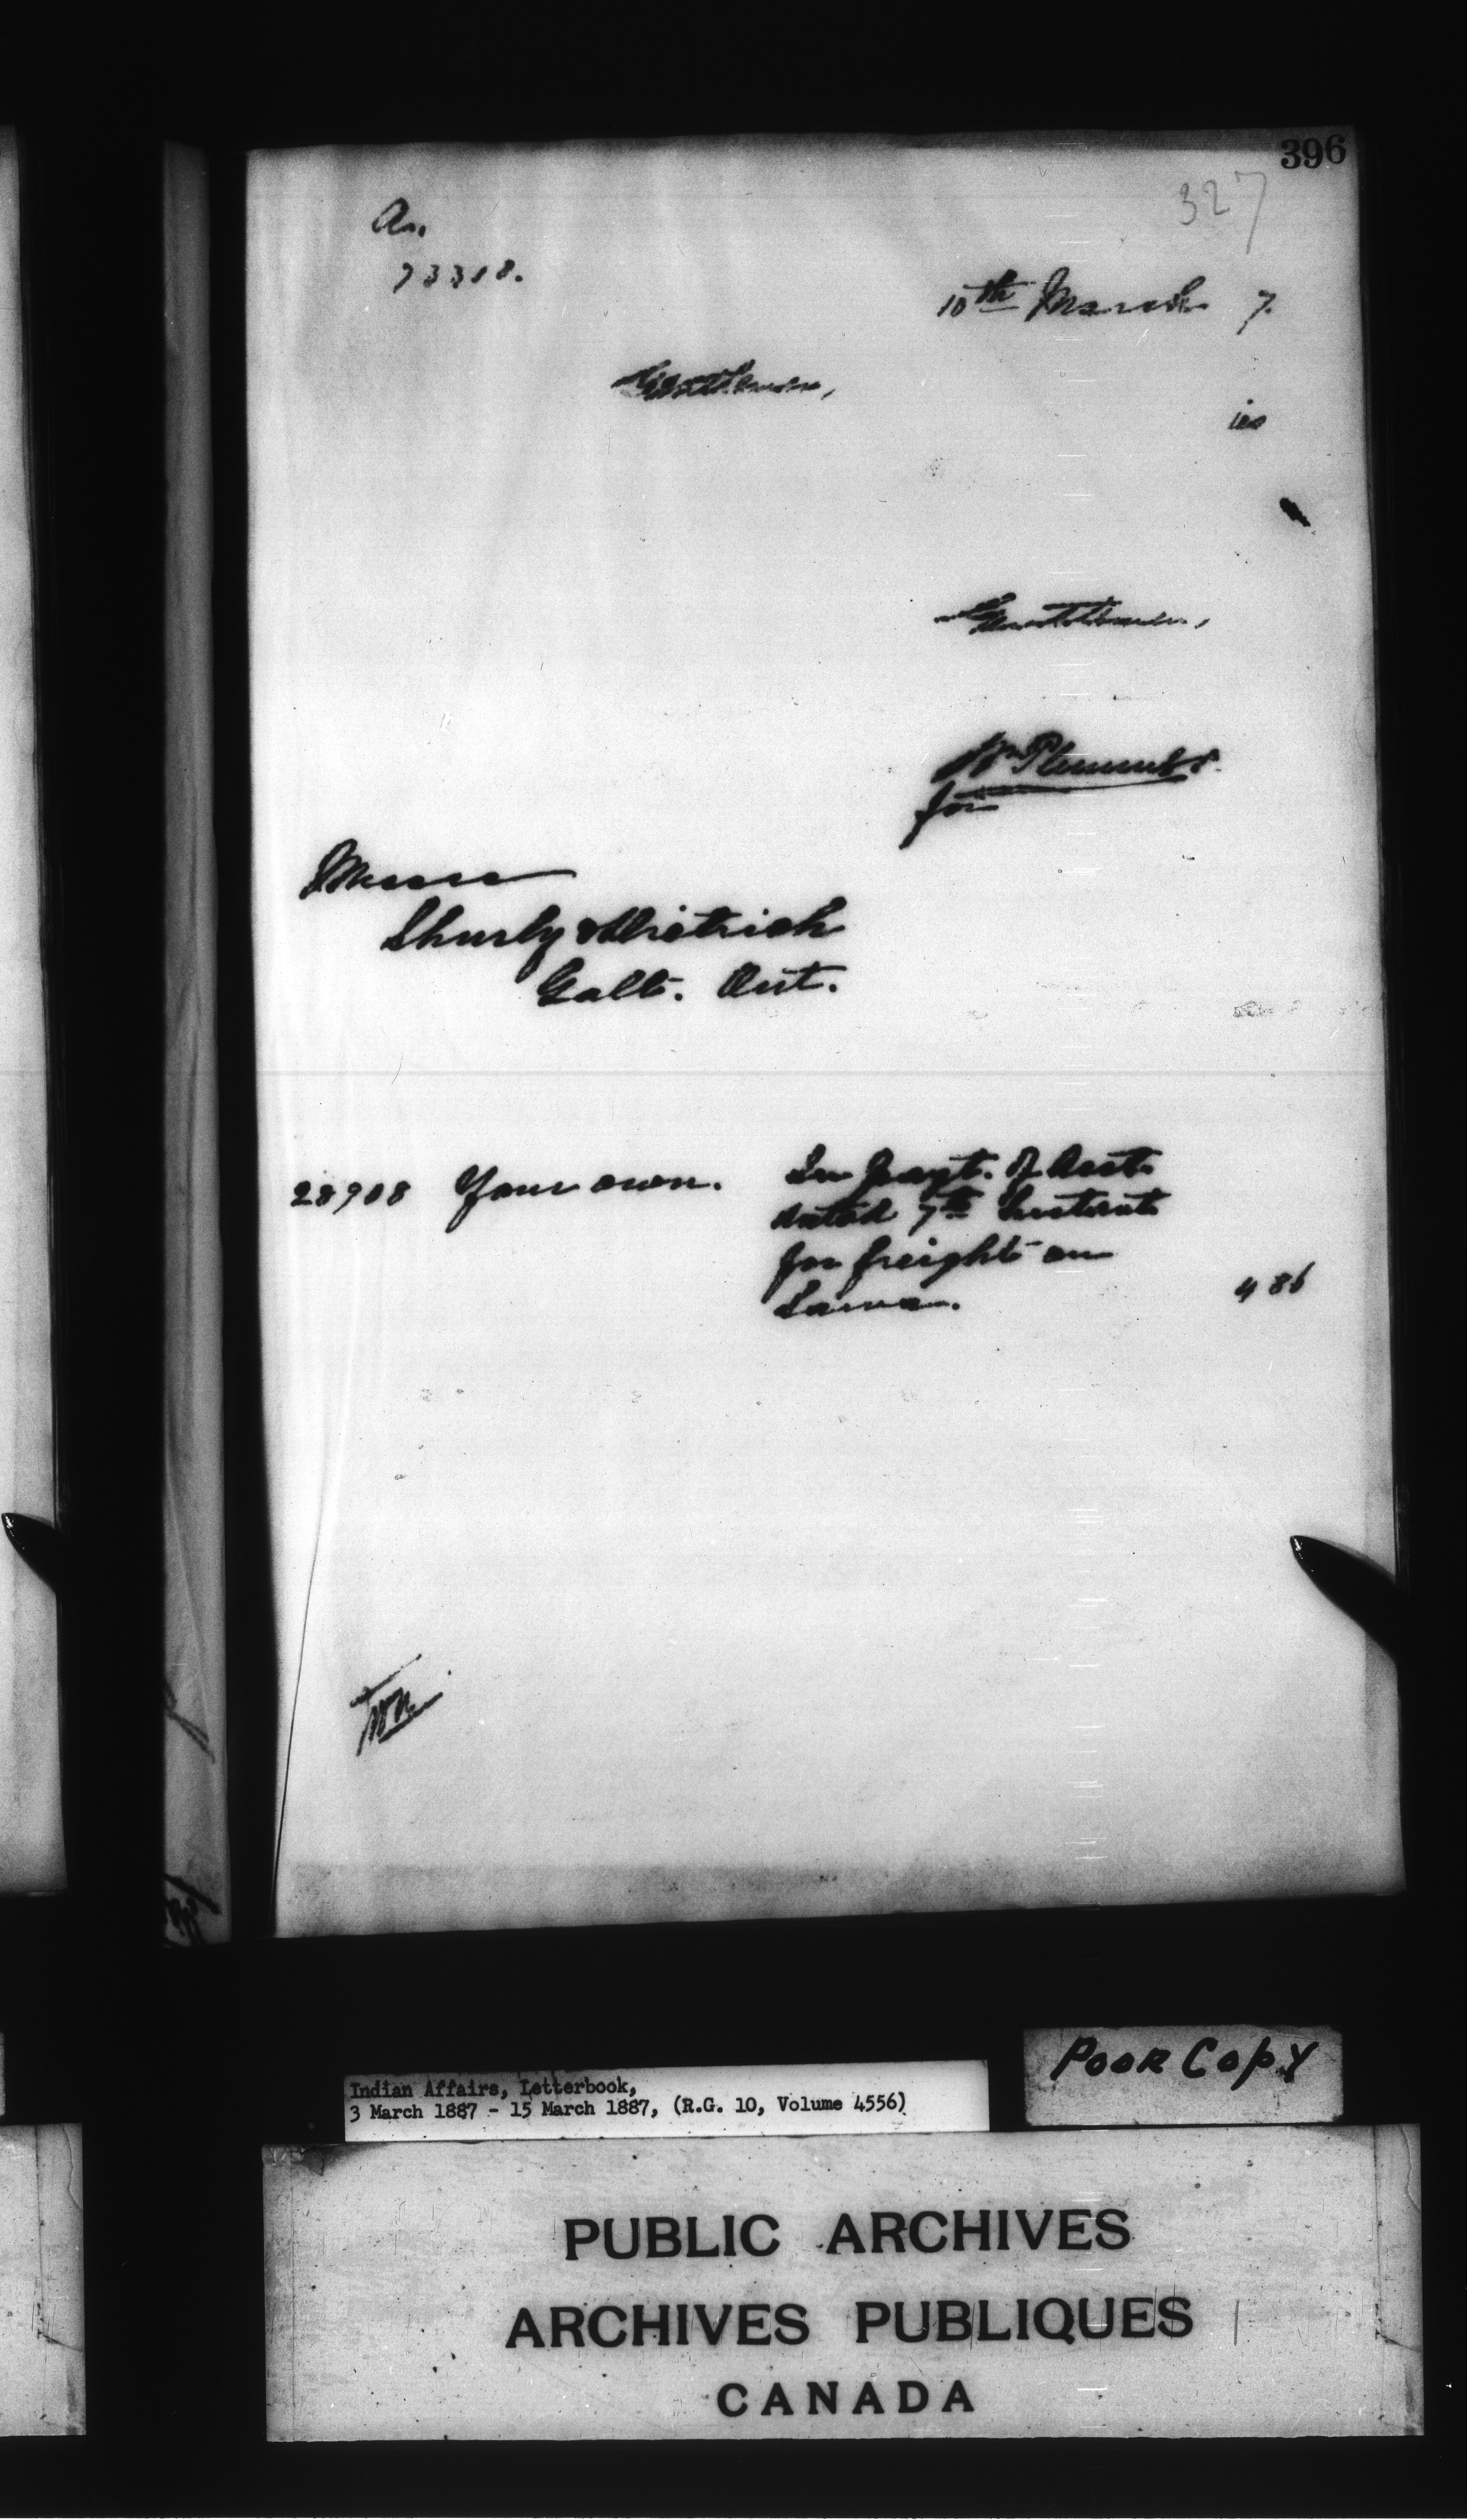 396
327
73318.
10th March 7.
Gentlemen,
ies
Gentlemen,
for
Messrs
Shurly & Dietrich
Galt. Ont.
28908 Your own. In payt. of Acct.
dated 7th Instant
for freight on
Saws.
4 86
Indian Affairs, Letterbook,
3 March 1887 - 15 March 1887, (R.G. 10, Volume 4556)
POOR COPY
PUBLIC ARCHIVES
ARCHIVES PUBLIQUES
CANADA